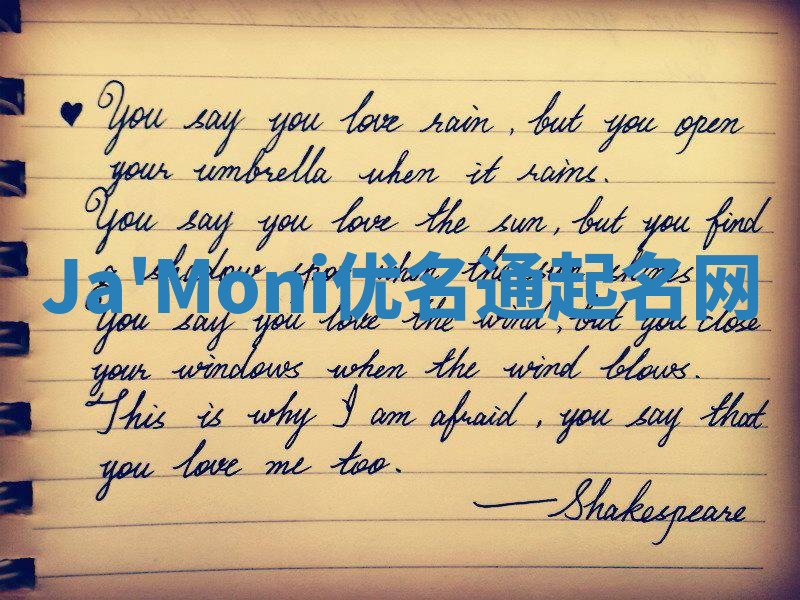 ♥ You say you love rain, but you open
your umbrella when it rains.
You say you love the sun, but you find
a shadow spot when the sun shines
Ja'Moni优名通起名网
You say you love the wind, but you close
your windows when the wind blows.
This is why I am afraid, you say that
you love me too.
—Shakespeare